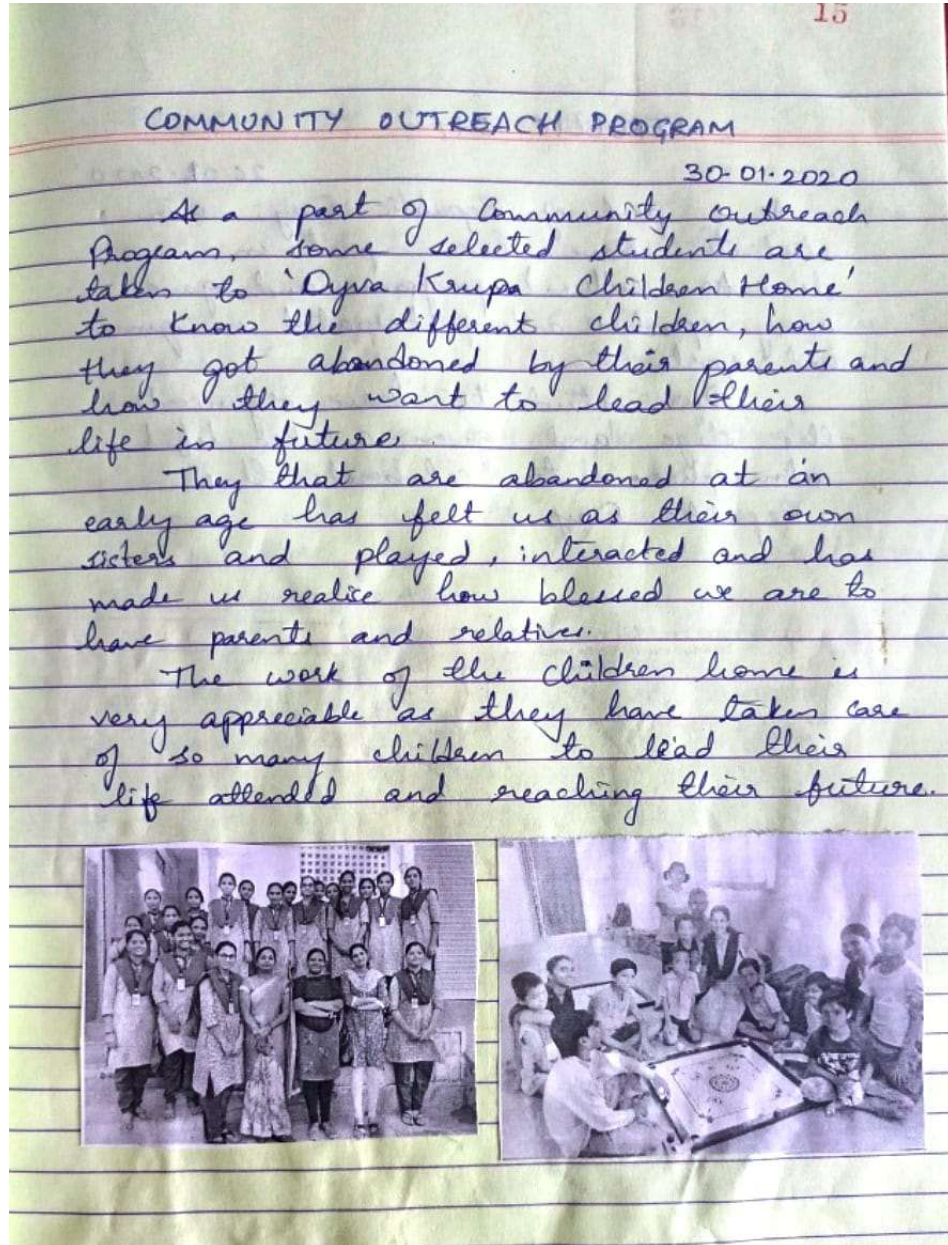 15
COMMUNITY OUTREACH PROGRAM
30-01-2020
As a part of Community outreach
Program, some selected students are
taken to 'Dyva Krupa Children Home'
to know the different children, how
they got abandoned by their parents and
how they want to lead their
life in future.
They that are abandoned at an
early age has felt us as their own
sisters and played, interacted and has
made us realise how blessed we are to
have parents and relatives.
The work of the children home is
very appreciable as they have taken care
of so many children to lead their
life attended and reaching their future.